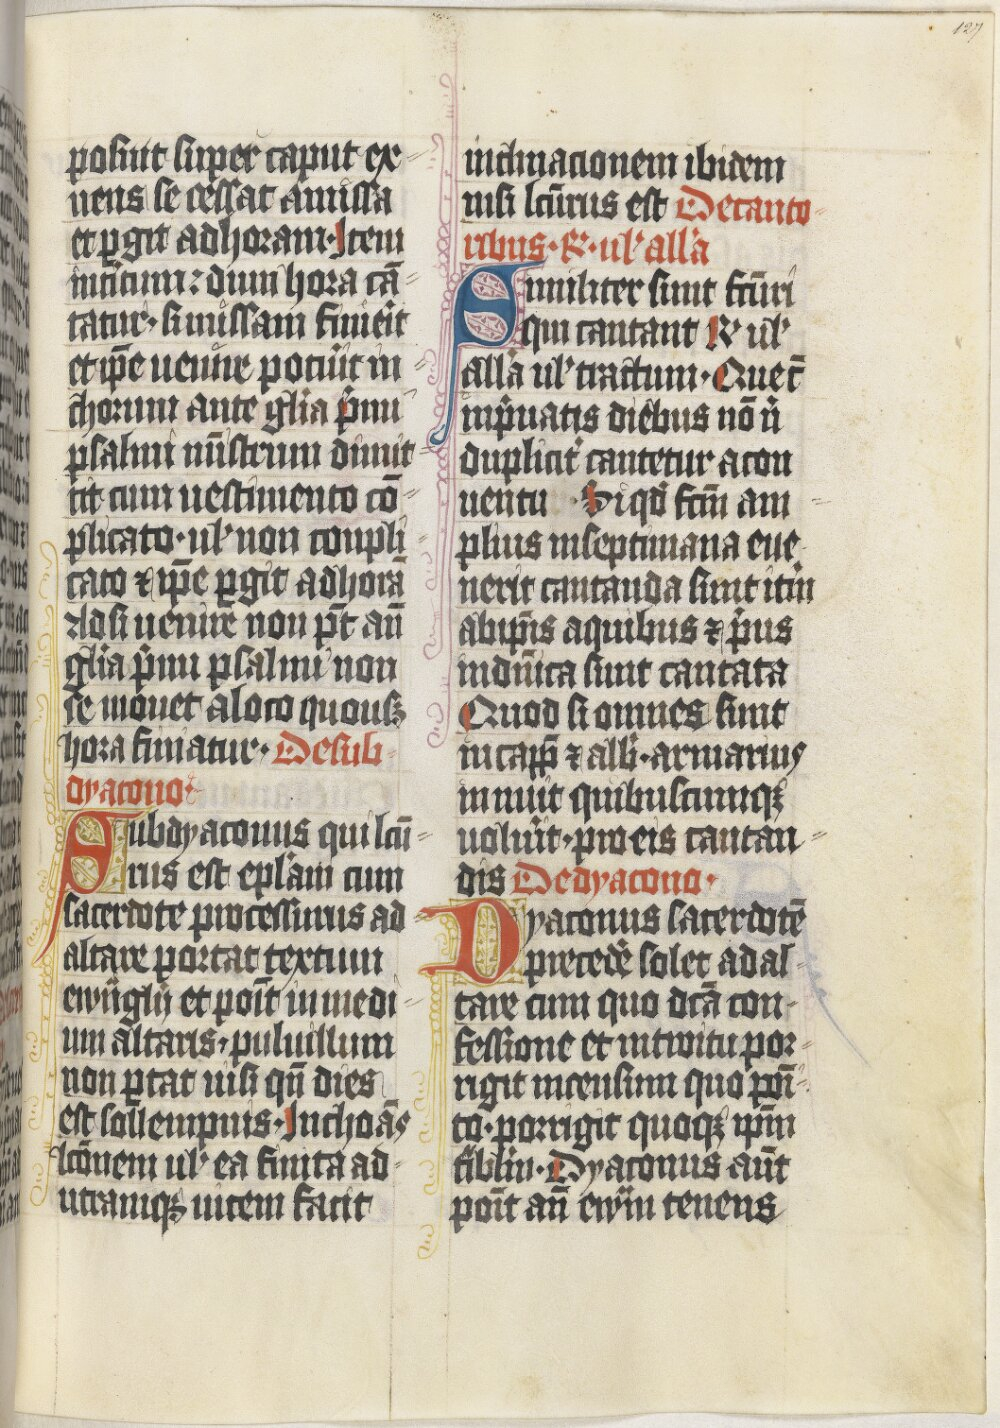 127
posuit super caput ex
uens se cessat a missa
et ꝑgit ad horam· Item
initium ꝛ dum hora cā
tatur· si missam finierit
et ip̄e uenire potuit in
chorum ante gl̄ia p̄mi
psalmi mīstrum dimit
tit cum uestimento cō
plicato· ul̛ non compli
cato ⁊ ip̄e ꝑgit ad horā
Ad si uenire non pt̄ an̄
gl̄ia p̄mi psalmi non
se mouet a loco quousqꝫ
hora finiatur· De sub
dyacono·
Subdyaconus qui lcū
rus est ep̄lam cum
sacerdote processurus ad
altare portat textum
ewn̄glij et poīt in medi
um altaris· puluillum
non ꝑtat nisi qn̄ dies
est sollempnis· Inchoās
lcōnem ul̛ ea finita ad
utramqꝫ uicem facit
inclinacionem ibidem
nisi lcūrus est De canto
ribus· R̛· ul̛ all̄a
Similiter sunt fcūri
qui cantant R̛ ul̛
all̄a ul̛ tractum· Que t̄
in p̄uatis diebus nō n̄
dupliciť cantetur a con
uentu Si qd̄ fcm̄ am
plius in septimana eue
nerit cantanda sunt itm̄
ab ip̄is a quibus ⁊ p̄us
in dn̄ica sunt cantata
Quod si omnes sunt
in capp̄ ⁊ alb̄· armarius
innuit quibuscumqꝫ
uolūit· pro eis cantan
dis De dyacono·
Dyaconus sacerdotē
precedē solet ad al
tare cum quo dcā con
fessione et introitu por
rigit incensum quo poī
to· porrigit quoqꝫ ip̄m
t̄iblm̄· Dyaconus aut̄
poīt an̄ ewm̄ tenens